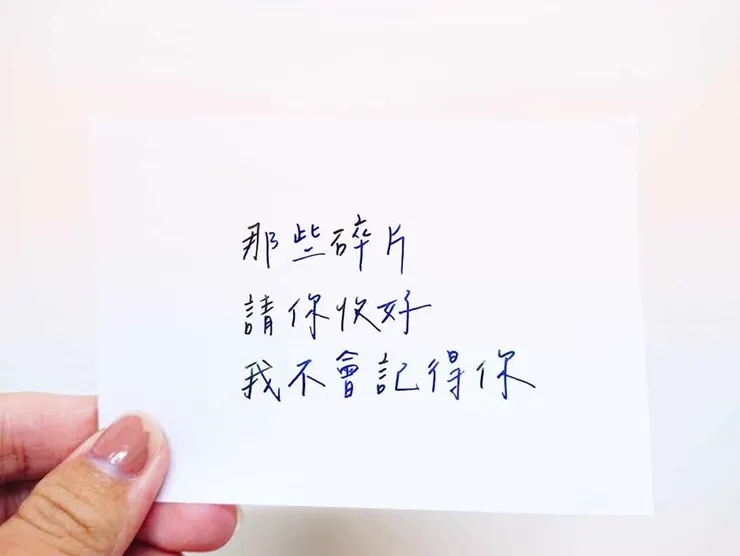 那些碎片
請你收好
我不會記得你